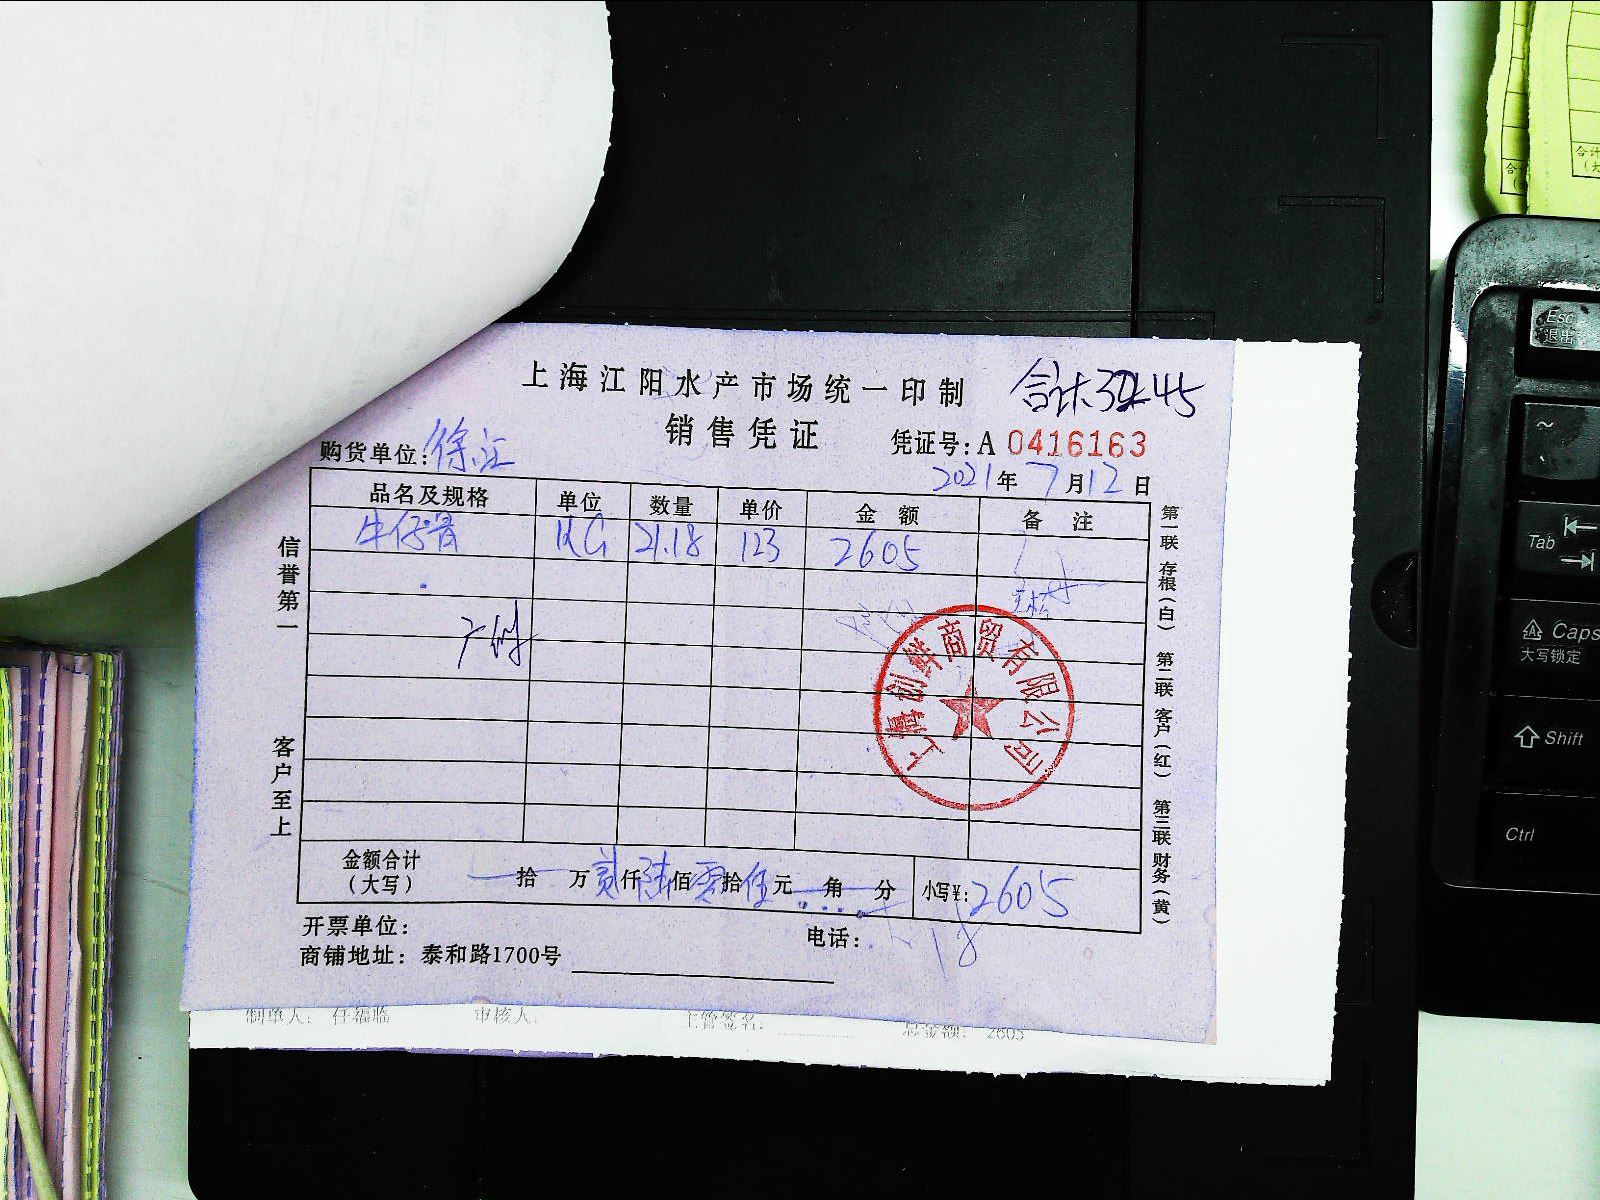 上海江阳水产市场统一印制
合计
销售凭证
凭证号:A 0416163
购货单位:徐汇
2021年7月12日
品名及规格 单位 数量 单价 金额 备注
牛仔骨 KG 21.18 123 2605
信誉第一
客户至上
上海创鲜商贸有限公司
金额合计(大写) 拾万贰仟陆佰零拾伍元角分 小写¥:2605
开票单位:
电话:
18
商铺地址:泰和路1700号
第一联 存根(白) 第二联 客户(红) 第三联 财务(黄)
制单人: 任福临 审核人: 主管签名: 总金额: 2605
Esc
退出
~
Tab
Caps
大写锁定
Shift
Ctrl
合计